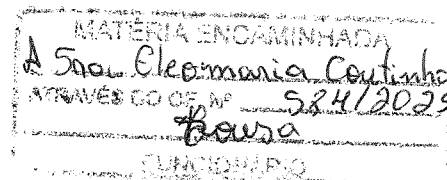 MATÉRIA ENCAMINHADA
A Sra. Cleomaria Coutinho
ATRAVÉS DO OF. Nº 524/2025
Sousa
FUNCIONÁRIO